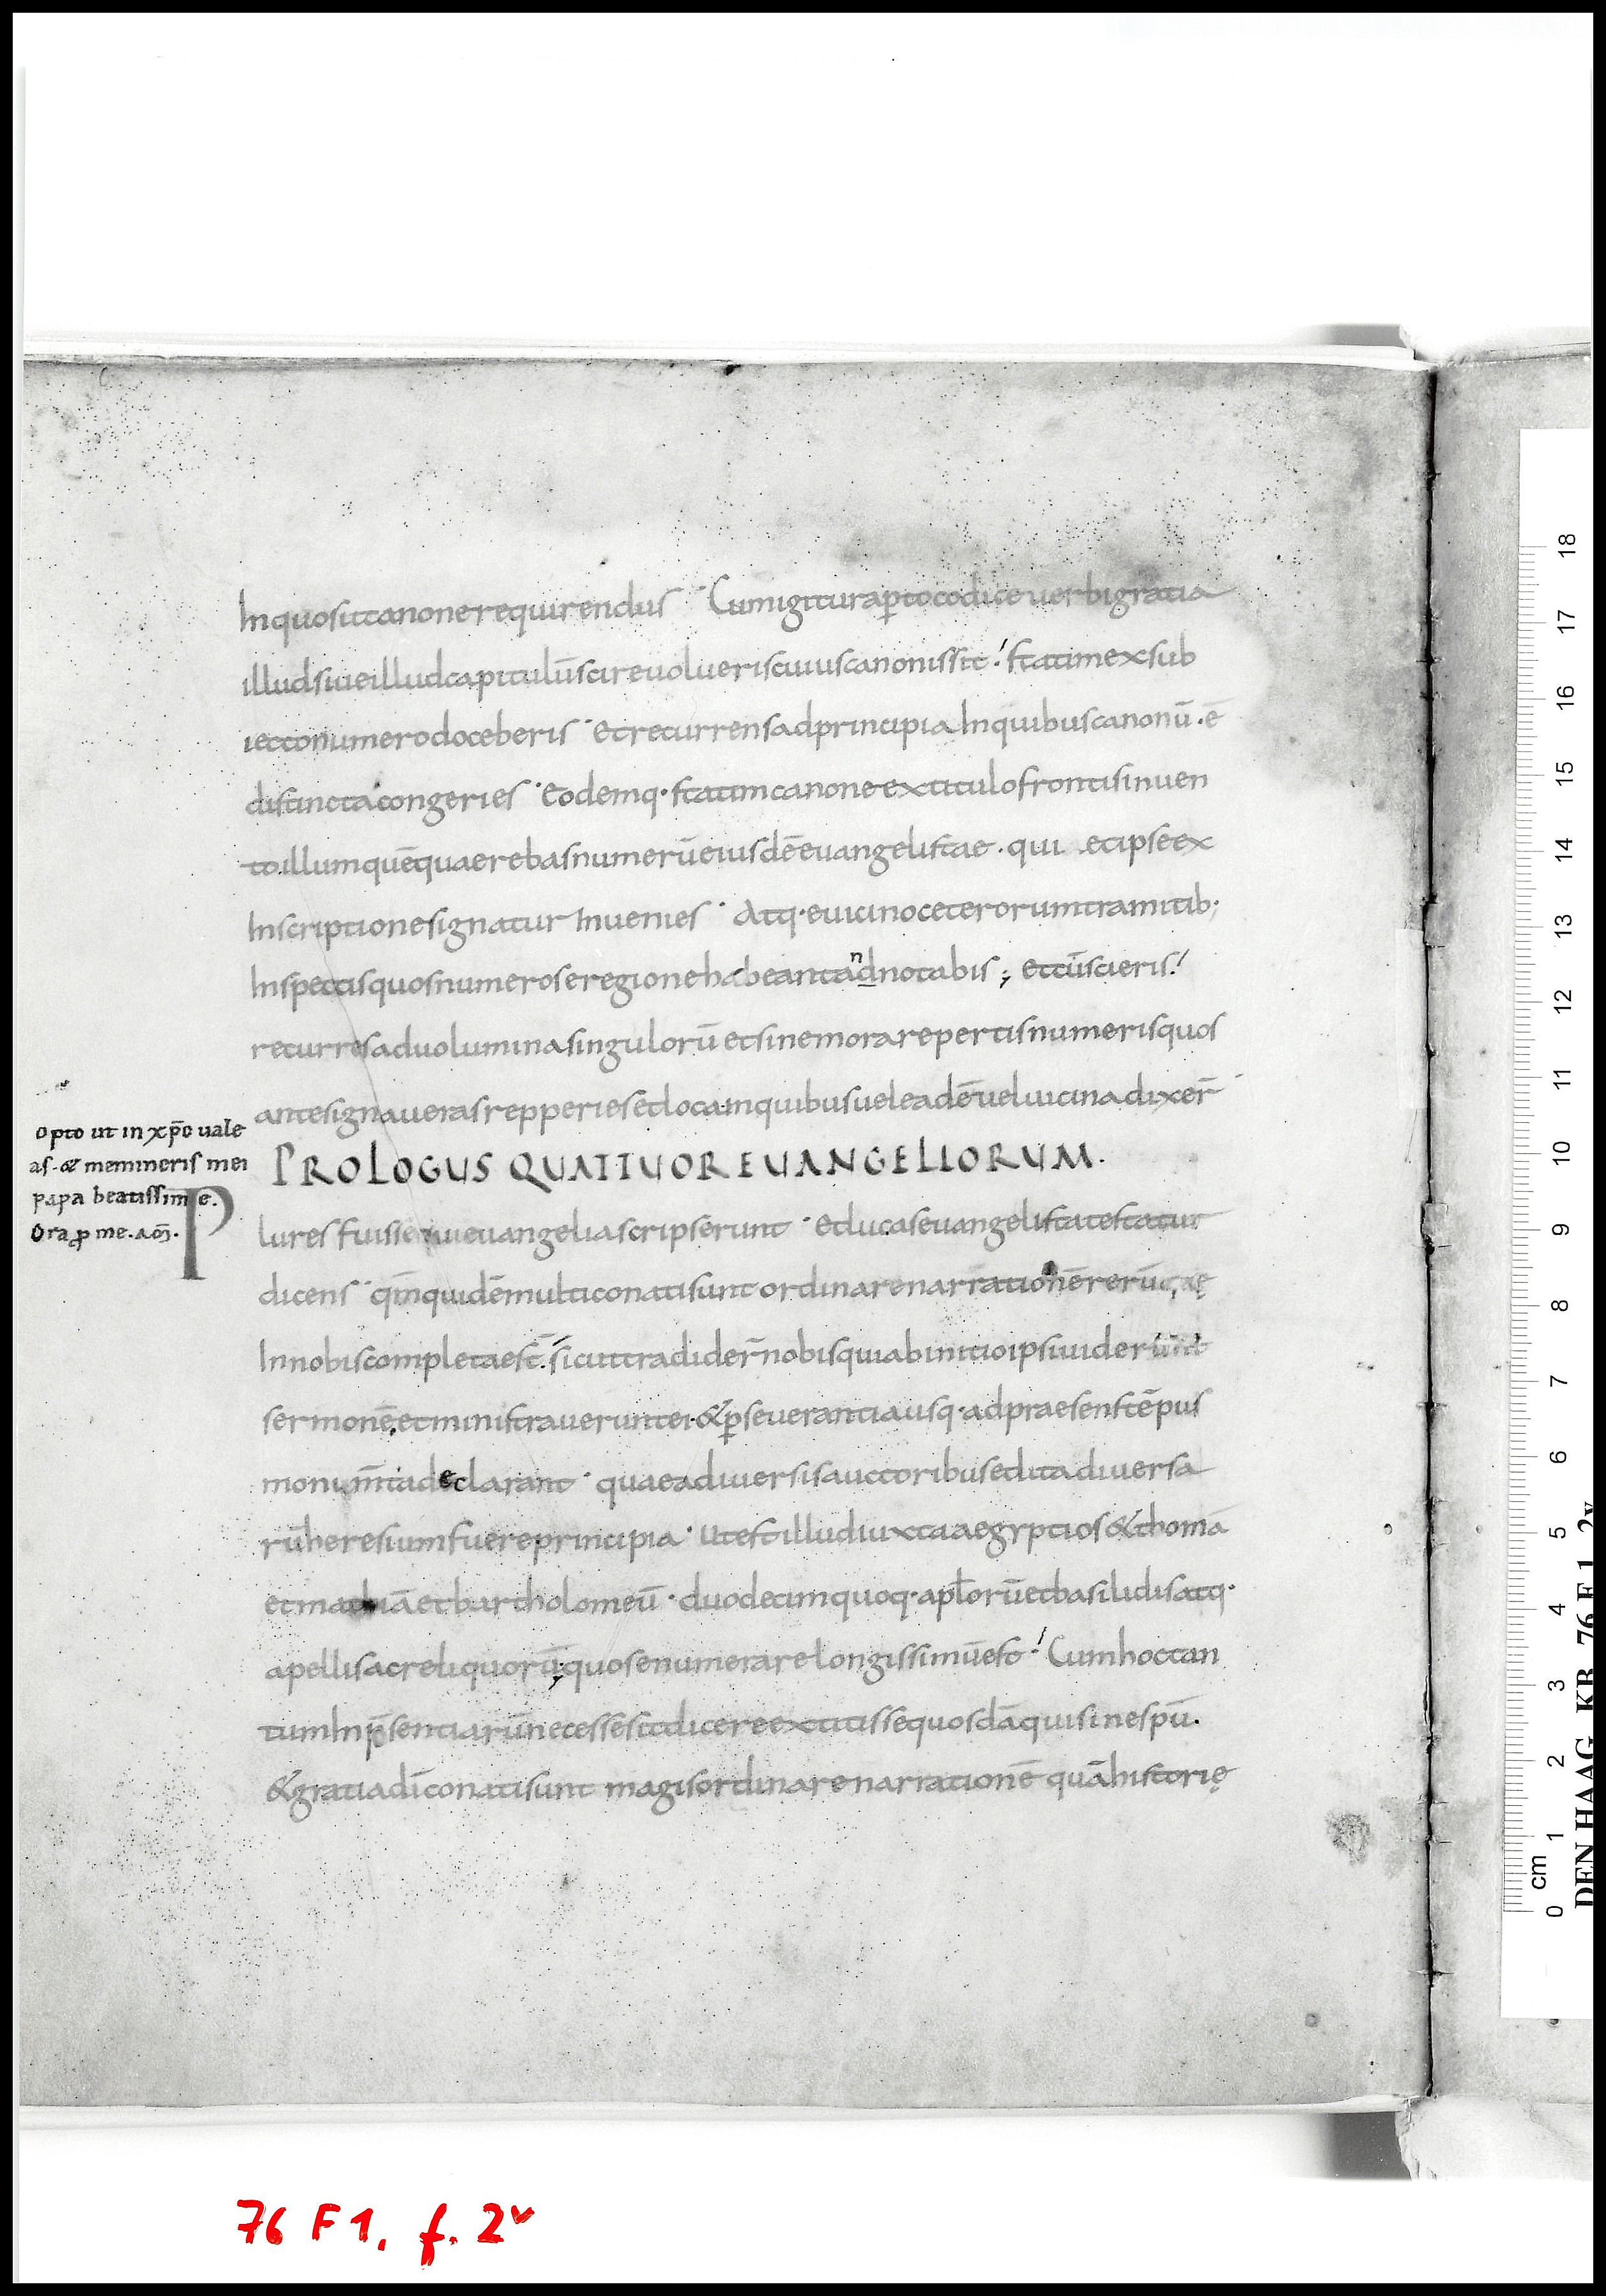 In quo sit canone requirendus · Cum igitur ap̲to codice verbi gratia
illud siue illud capitulū scire volueris cuius canonis sit: statim ex sub
iecto numero doceberis · Et recurrens ad principia In quibus canonū · ē
distincta congeries · Eodemq· statim canone ex titulo frontis inuen
to illum quē quaerebas numerū eiusdē euangelistae · qui et ipse ex
Inscriptione signatur Inuenies · Atq· e uicino ceterorum tramitib;
Inspectis quos numeros e regione habeant adnotabis ; et cū scieris:
recurres ad uolumina singulorū et sine mora repertis numeris quos
ante signaueras repperies et loca in quibus uel eadē uel uicina dixer̄
opto ut in xp̄o uale
as · & memineris mei
papa beatissime.
Ora p̲ me. am̄.
PROLOGUS QUATTUOR EUANGELIORUM.
Plures fuisse qui euangelia scripserunt · et lucas euangelista testatur
dicens · qm̄ quidē multi conati sunt ordinare narrationē rerū quę
In nobis completae st̄. sicut tradider̄ nobis qui ab initio ipsi uiderunt
sermonē et ministrauerunt ei · & p̲seuerantia usq· ad praesens tēpus
monum̄ta declarant · quae a diuersis auctoribus edita diuersa
rū heresium fuere principia · Ut est illud iuxta aegyptios & thomā
et mathiā et bartholomeū · duodecim quoq· apl̄orū et basilidis atq·
apellis ac reliquorū; quos enumerare longissimū est : Cum hoc tan
tum In p̄sentiarū necesse sit dicere extitisse quosdā qui sine sp̄u.
& gratia dī conati sunt magis ordinare narrationē quā historię
18
17
16
15
14
13
12
11
10
9
8
7
6
5
4
3
2
1
0 cm
DEN HAAG KB 76 F 1 2v
76 F 1. f. 2v